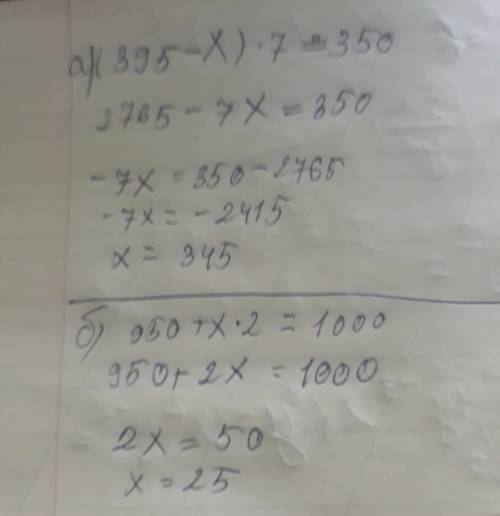 а)(395-х)·7=350
2765-7х=350
-7х=350-2765
-7х=-2415
х=345
б) 950+х·2=1000
950+2х=1000
2х=50
х=25